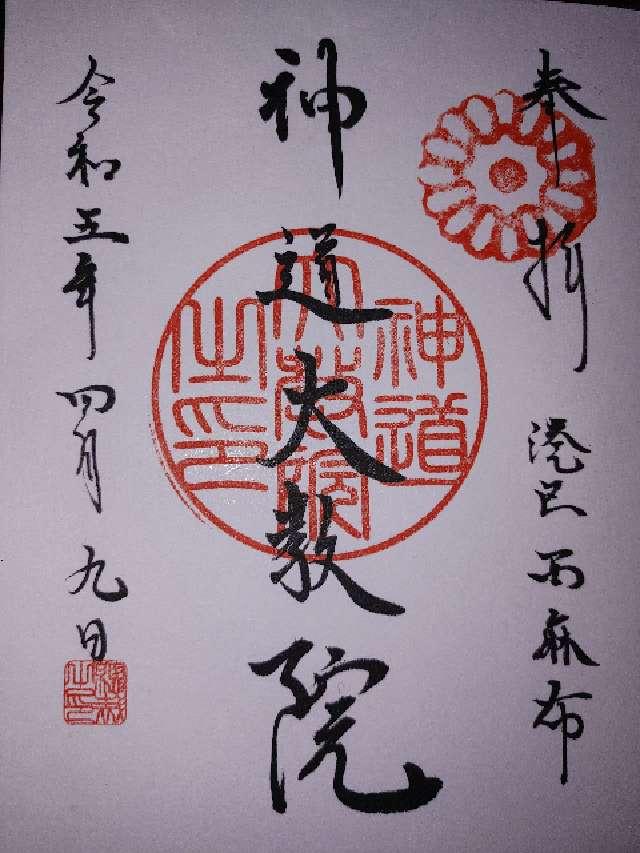 奉拝 港区西麻布
神道大教院
令和五年四月九日
神道
大教院
之印